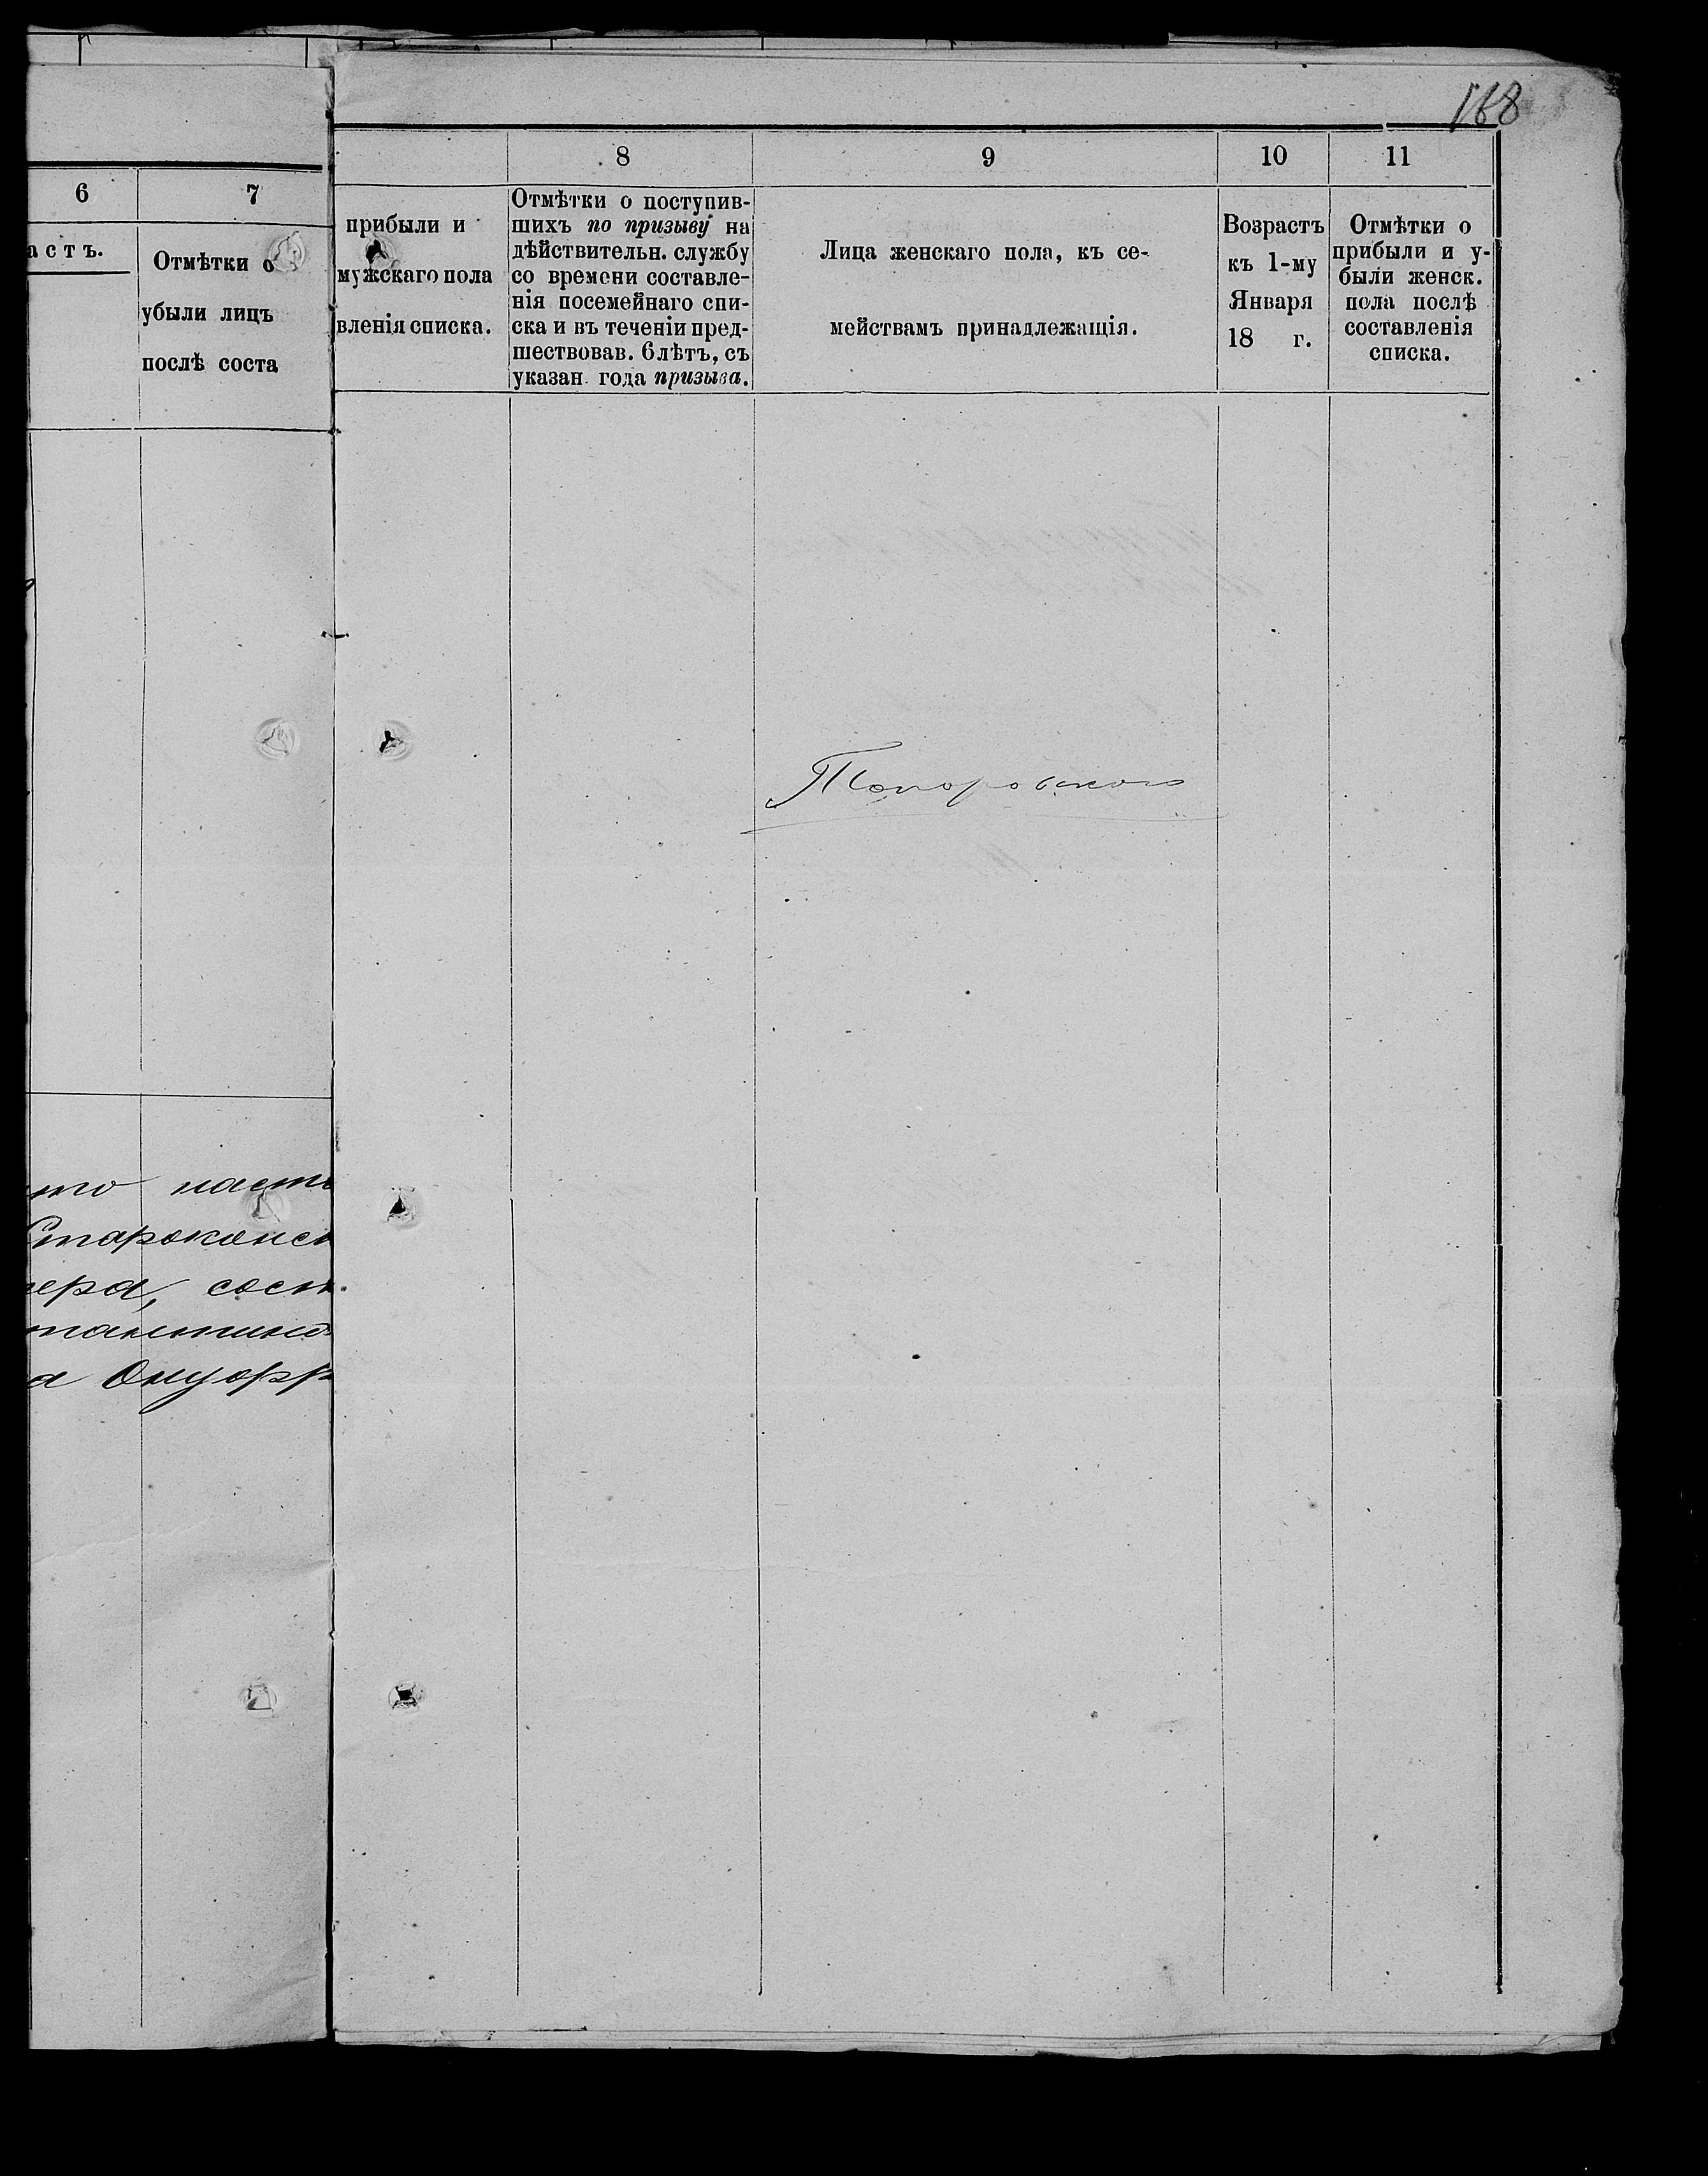 168
6
7
астъ.
Отмѣтки о
убыли лицъ
послѣ соста
8
9
10
11
прибыли и
мужскаго пола
вленія списка.
Отмѣтки о поступив-
шихъ по призыву на
дѣйствительн. службу
со времени составле-
нія посемейнаго спи-
ска и въ теченіи пред-
шествовав. 6 лѣтъ, съ
указан. года призыва.
Лица женскаго пола, къ се-
мействамъ принадлежащія.
Возрастъ
къ 1-му
Января
18 г.
Отмѣтки о
прибыли и у-
были женск.
пола послѣ
составленія
списка.
Топоровского
что насто
Староконст
ера, сост
тантино
а Онуфр